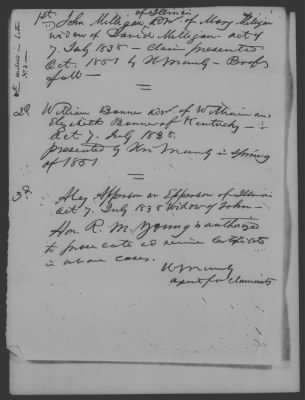 of Illinois
1st John Milligan adr. of Mary Miligan
widow of David Milligan - act of
7. July 1838 - claim presented
Oct. 1851 by W Mauly - Proofs
full -
2d. William Bonner adr. of William and
Elizabeth Bonner of Kentucky -
Act 7. July 1838.
presented by Wm Mauly in Spring
of 1851
3d. Mary Apperson or Epperson of Illinois
act 7. July 1838 Widow of John -
Hon. R. M. Young is authorized
to prosecute and receive Certificates
in above cases.
W Mauly
agent for claimants